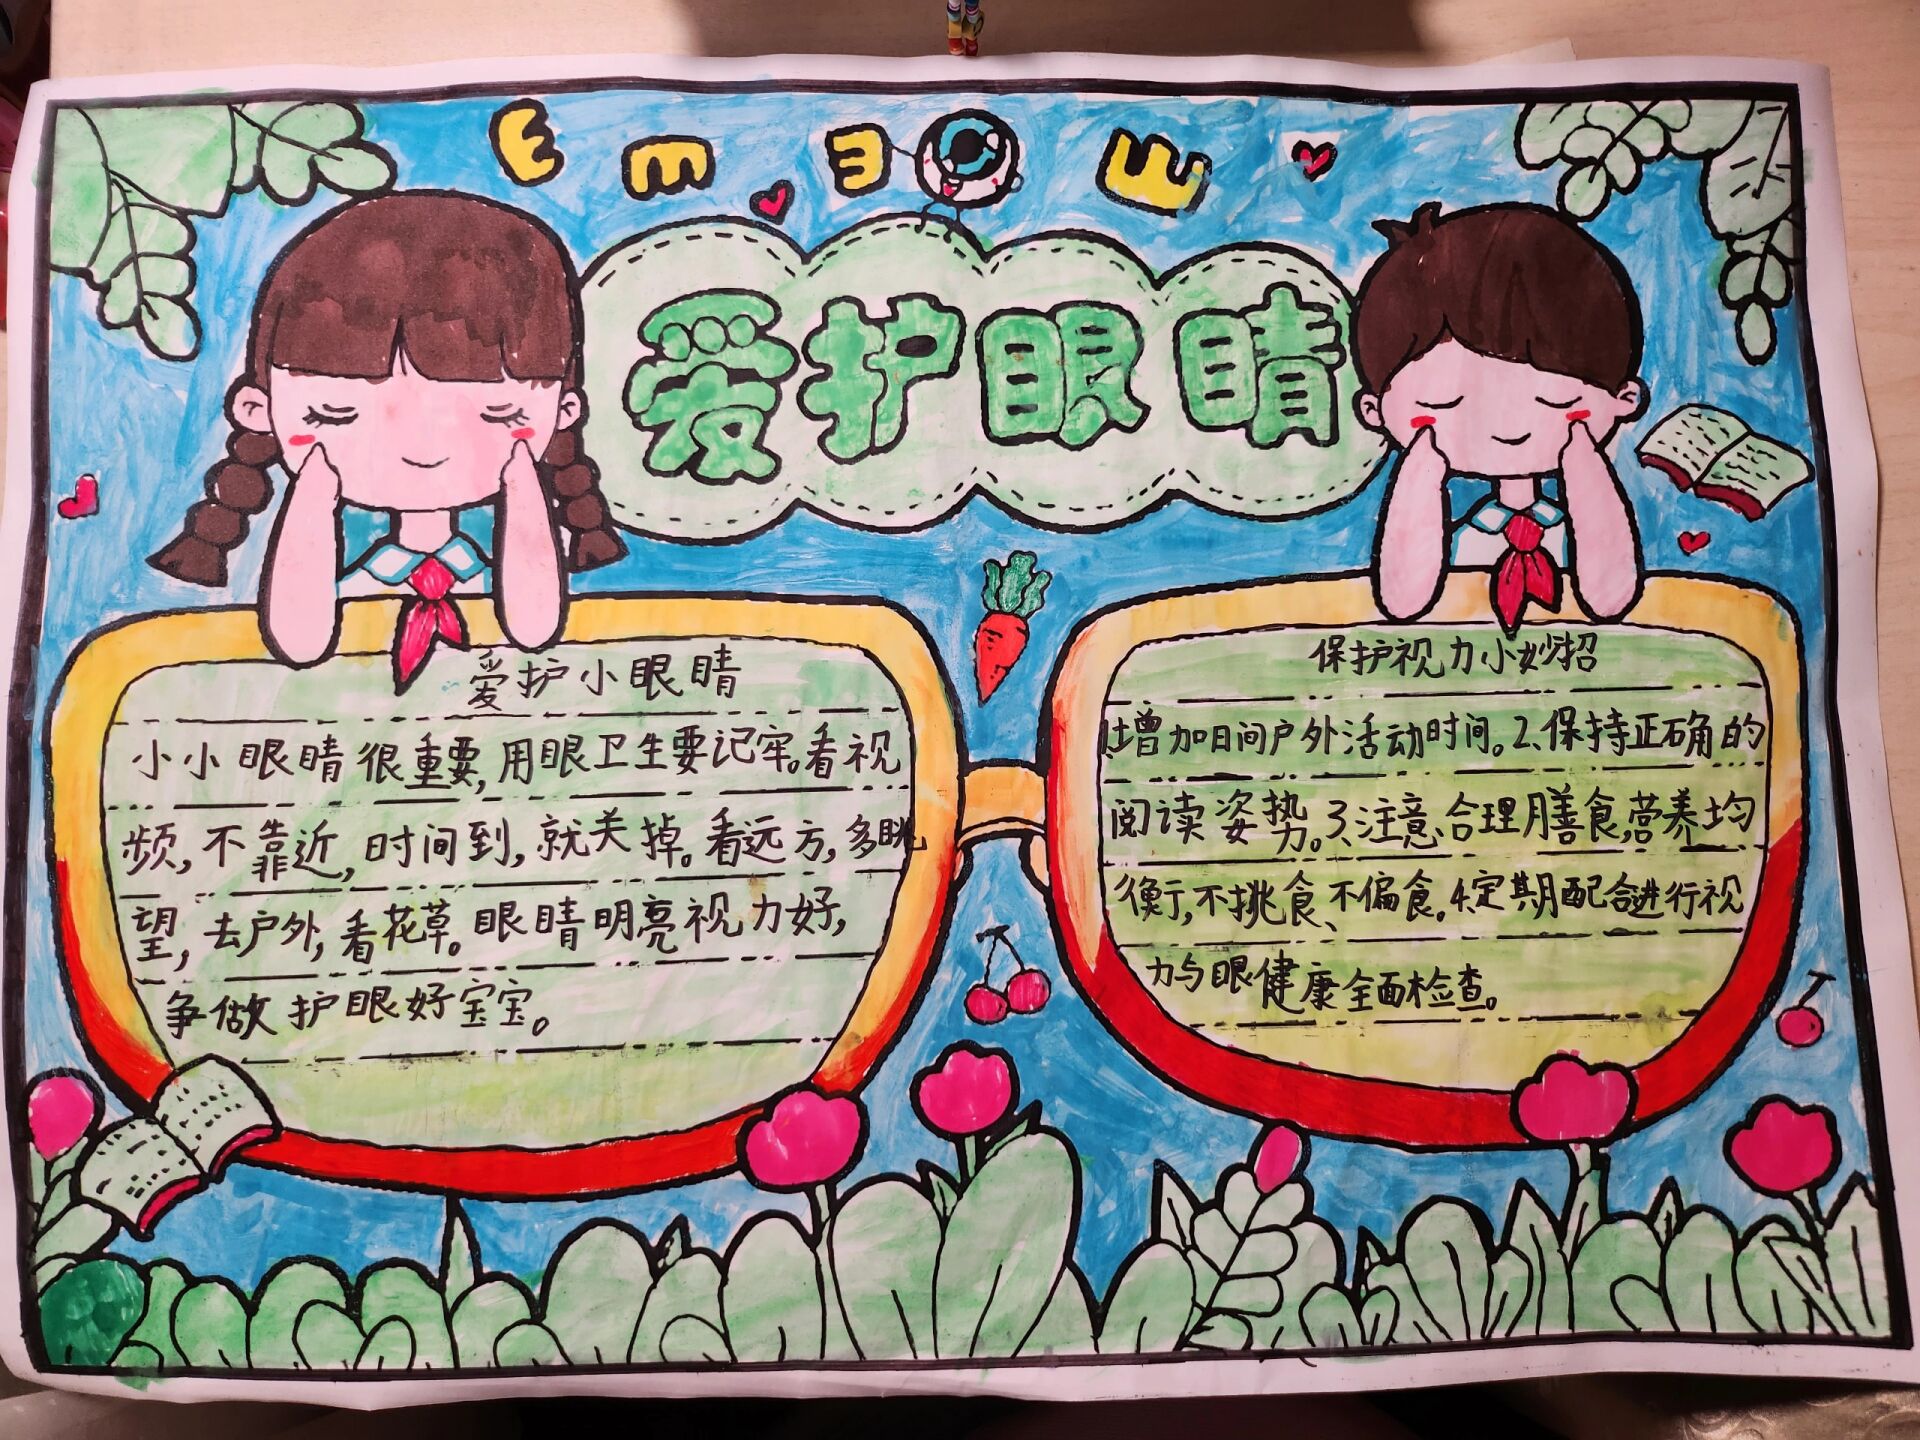 E m 3 Ш
爱护眼睛
爱护小眼睛
小小眼睛很重要,用眼卫生要记牢。看视
频,不靠近,时间到,就关掉。看远方,多眺
望,去户外,看花草。眼睛明亮视力好,
争做护眼好宝宝。
保护视力小妙招
1.增加日间户外活动时间。2.保持正确的
阅读姿势。3.注意、合理膳食,营养均
衡,不挑食、不偏食。4.定期配合进行视
力与眼健康全面检查。